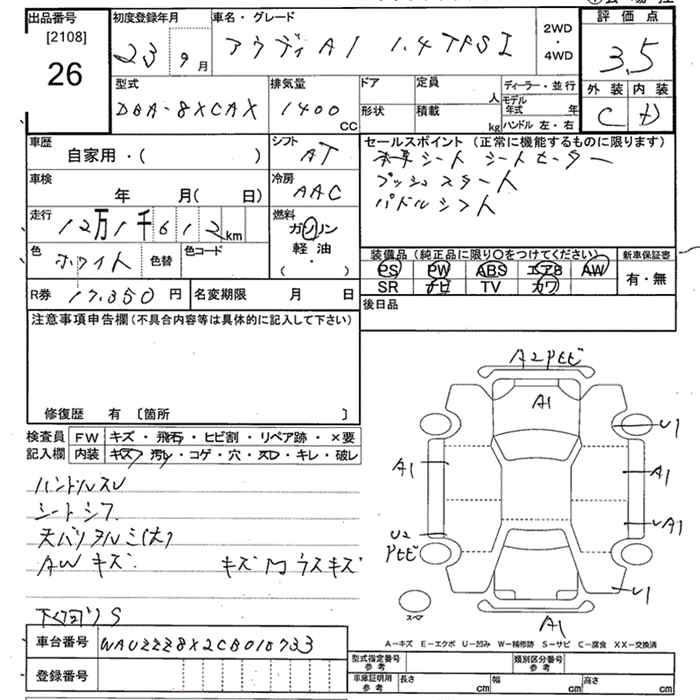 出品番号 初度登録年月 車名・グレード 評価点
[2108]
26
23 9月 アウディA1 1.4TFSI 2WD・4WD 3.5
型式 排気量 ドア 定員 人 ディーラー・並行 外装 内装
DBA-8XCAX 1400 CC 形状 積載 kg モデル年式 年 C D
ハンドル 左・右
車歴 シフト セールスポイント (正常に機能するものに限ります)
自家用・( ) AT 本革シート シートヒーター
車検 冷房 プッシュスタート
年 月( 日) AAC パドルシフト
走行 燃料
12万1千612km ガソリン
軽油・( )
色 ホワイト 色替 色コード
装備品(純正品に限り○をつけてください) 新車保証書
PS PW ABS エアB AW 有・無
SR ナビ TV カワ
R券 17.350円 名変期限 月 日 後日品
注意事項申告欄(不具合内容等は具体的に記入して下さい)
修復歴 有 [箇所 ]
検査員 FW キズ・飛石・ヒビ割・リペア跡・×要
記入欄 内装 キズ・汚レ・コゲ・穴・スレ・キレ・破レ
ハンドルスレ
シートシワ
天バリタルミ(大)
AWキズ キズ 内ウスキズ
下回りS
A2 Pセビ
A1
U1
A1
A1
U2 Pセビ
UA1
U1
スペア
A1
A-キズ E-エクボ U-凹み W-補修跡 S-サビ C-腐食 XX-交換済
車台番号 WAUZZZ8X2CB010733
登録番号
型式指定番号 参考 類別区分番号 参考
車庫証明用 参考 長さ cm 幅 cm 高さ cm